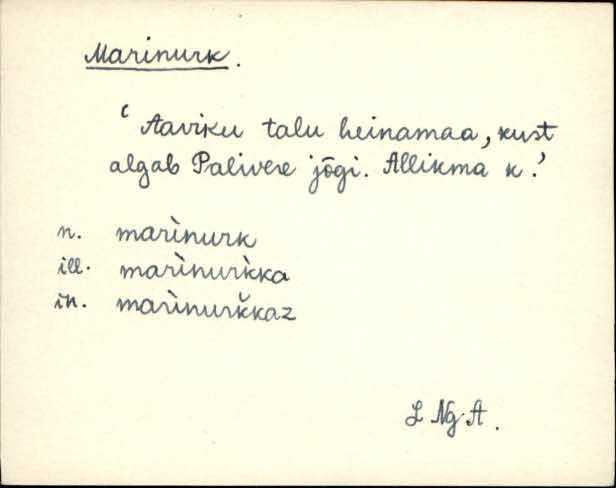 Marinurk.
‘Aaviku talu heinamaa, kust
algab Palivere jõgi. Allikma k.’
n. marìnurk
ill. marìnurkka
in. marìnurkkaz
L Ng A.